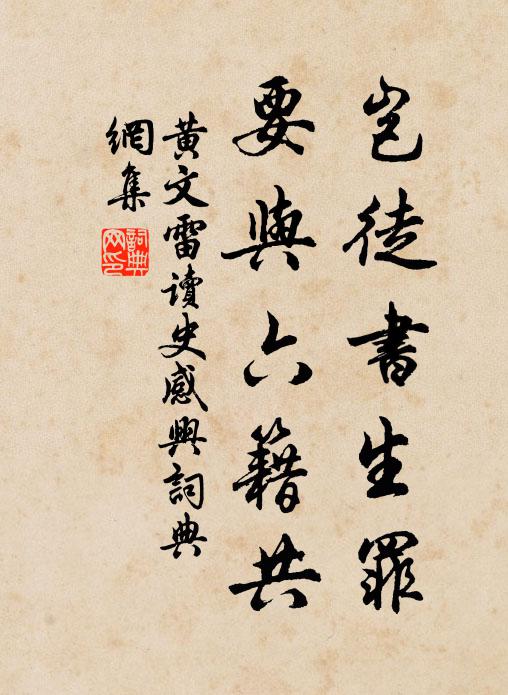 豈徒書生罪
要與六籍共
黃文雷讀史感興詞典
網集
詞典網印